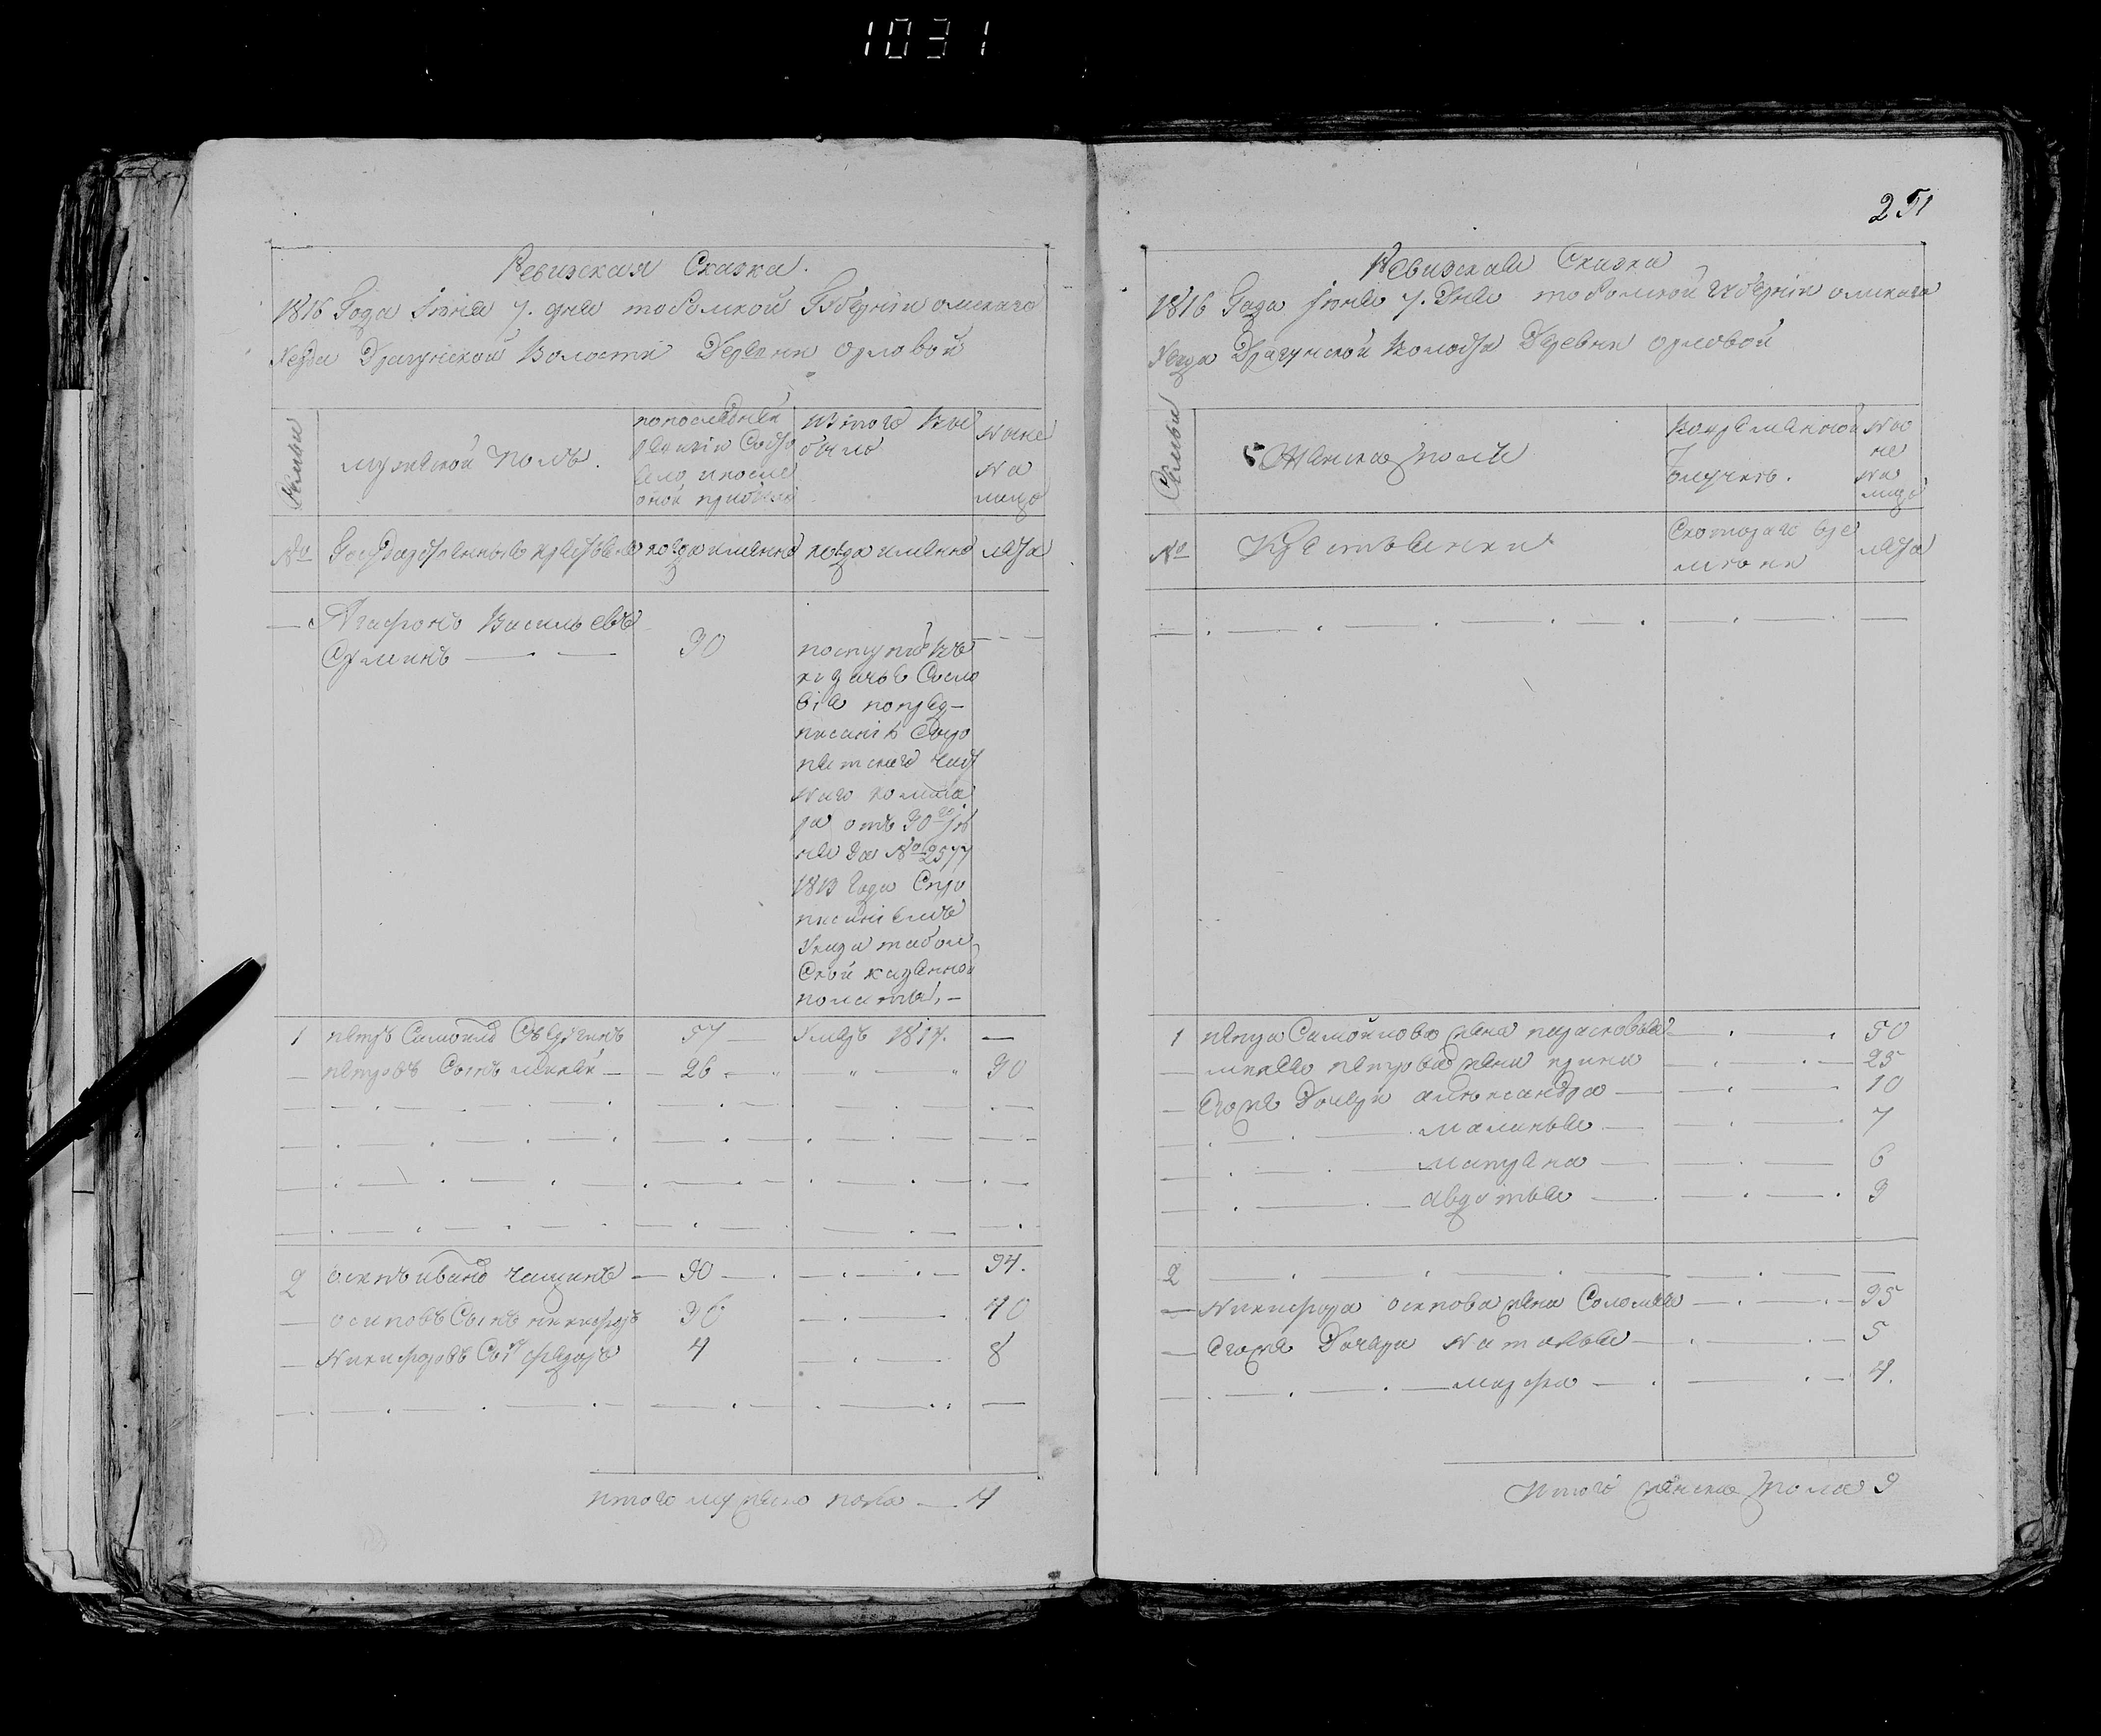 1031
251
Ревизская Сказка.
1816 Года Июня 7. дня тобольской Губернии омскаго
Уезда Драгунской Волости Деревни орловой
Семьи
мужеской полъ.
по последней
ревизии состо
яло и после
оной прибыло
из того вы
было
Ныне
на
лицо
№
Государственные крестьяне
когда именно
когда именно
лета
Агафонъ Васильевъ
30
поступилъ въ
казачье Сосло
вие по пред-
писанию
от 30го
за № 2577
1813 Года
Указа тоболь
Ской казенной
полаты. -
1 петръ Самойловъ 57 умеръ 1814. —
петровъ Сынъ Миней 26 30
2 осипъ ивановъ чащинъ 90 94.
осиповъ Сынъ никифоръ 36 40
Никифоровъ Сынъ федоръ 4 8
итого мужеска пола — 4
Ревизская Сказка
1816 Года Июня 7. Дня тобольской губернии омскаго
Уезда Драгунской Волости Деревни орловой
Семьи
Женска полу
Во временной
отлучке.
Ны
не
на
лицо
№
Крестьянки
Скотораго вре
мяни
лета
1 петра Самойлова жена парасковья 50
минея петрова жена ирина 25
Его же Дочери александра 10
маланья 7
матрена 6
авдотья 3
2
Никифора осипова жена Соломея 35
Его же Дочери Наталья 5
марфа 4.
Итого женска пола 9